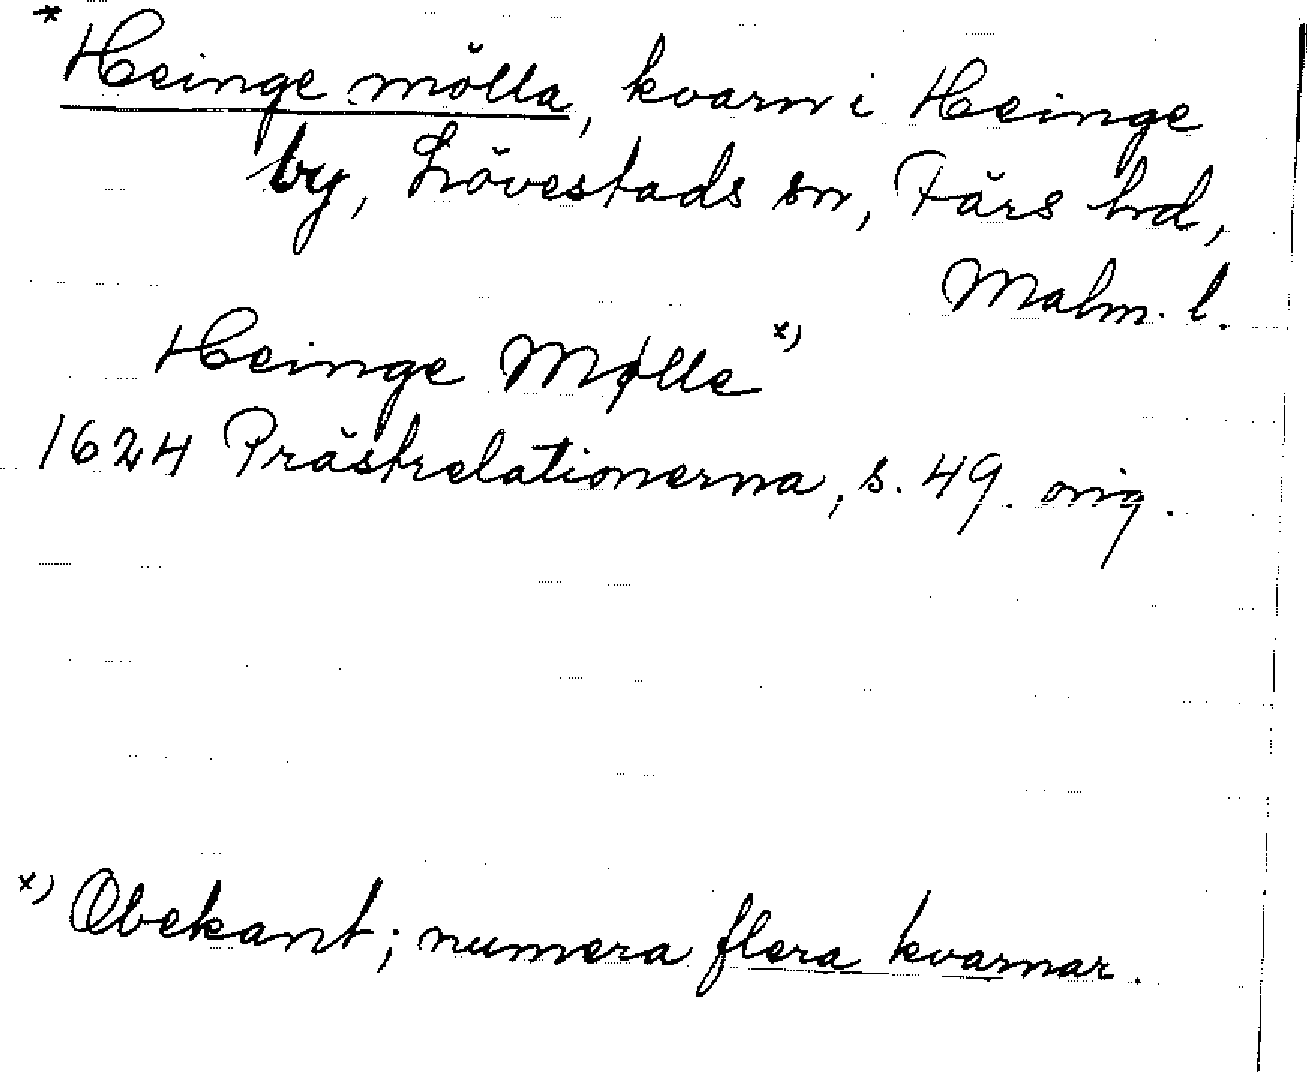 * Heinge mölla, kvarn i Heinge
by, Lövestads sn, Färs hrd,
Malm. l.
Heinge Mølle x)
1624 Prästrelationerna, s. 49. orig.
x) Obekant; numera flera kvarnar.